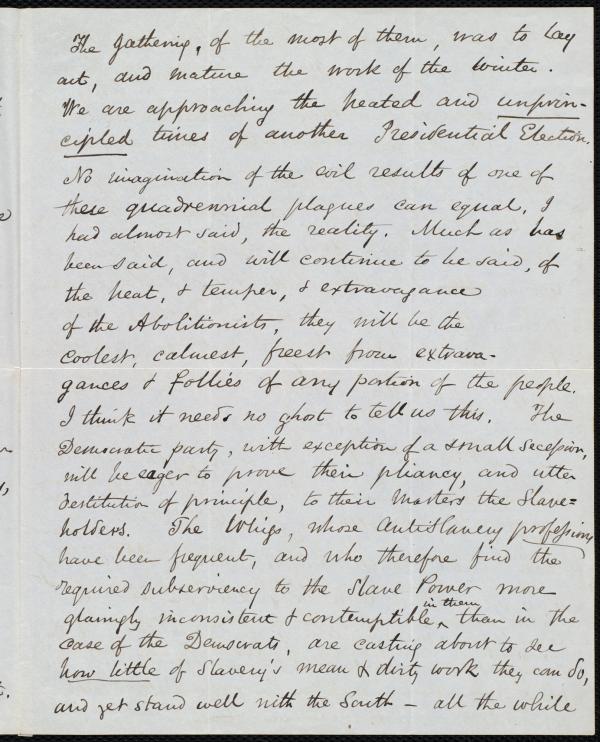 The gathering, of the most of them, was to lay
out, and mature the work of the winter.
We are approaching the heated and unprin-
cipled times of another Presidential Election.
No imagination of the evil results of one of
these quadrennial plagues can equal, I
had almost said, the reality. Much as has
been said, and will continue to be said, of
the heat, & temper, & extravagance
of the Abolitionists, they will be the
coolest, calmest, freest from extrava-
gances & follies of any portion of the people.
I think it needs no ghost to tell us this. The
Democratic party, with exception of a small secession,
will be eager to prove their pliancy, and utter
destitution of principle, to their Masters the Slave=
holders. The Whigs, whose AntiSlavery professions
have been frequent, and who therefore find the
required subserviency to the Slave Power more
glaringly inconsistent & contemptible in them, than in the
case of the Democrats, are casting about to see
how little of Slavery's mean & dirty work they can do,
and yet stand well with the South – all the while